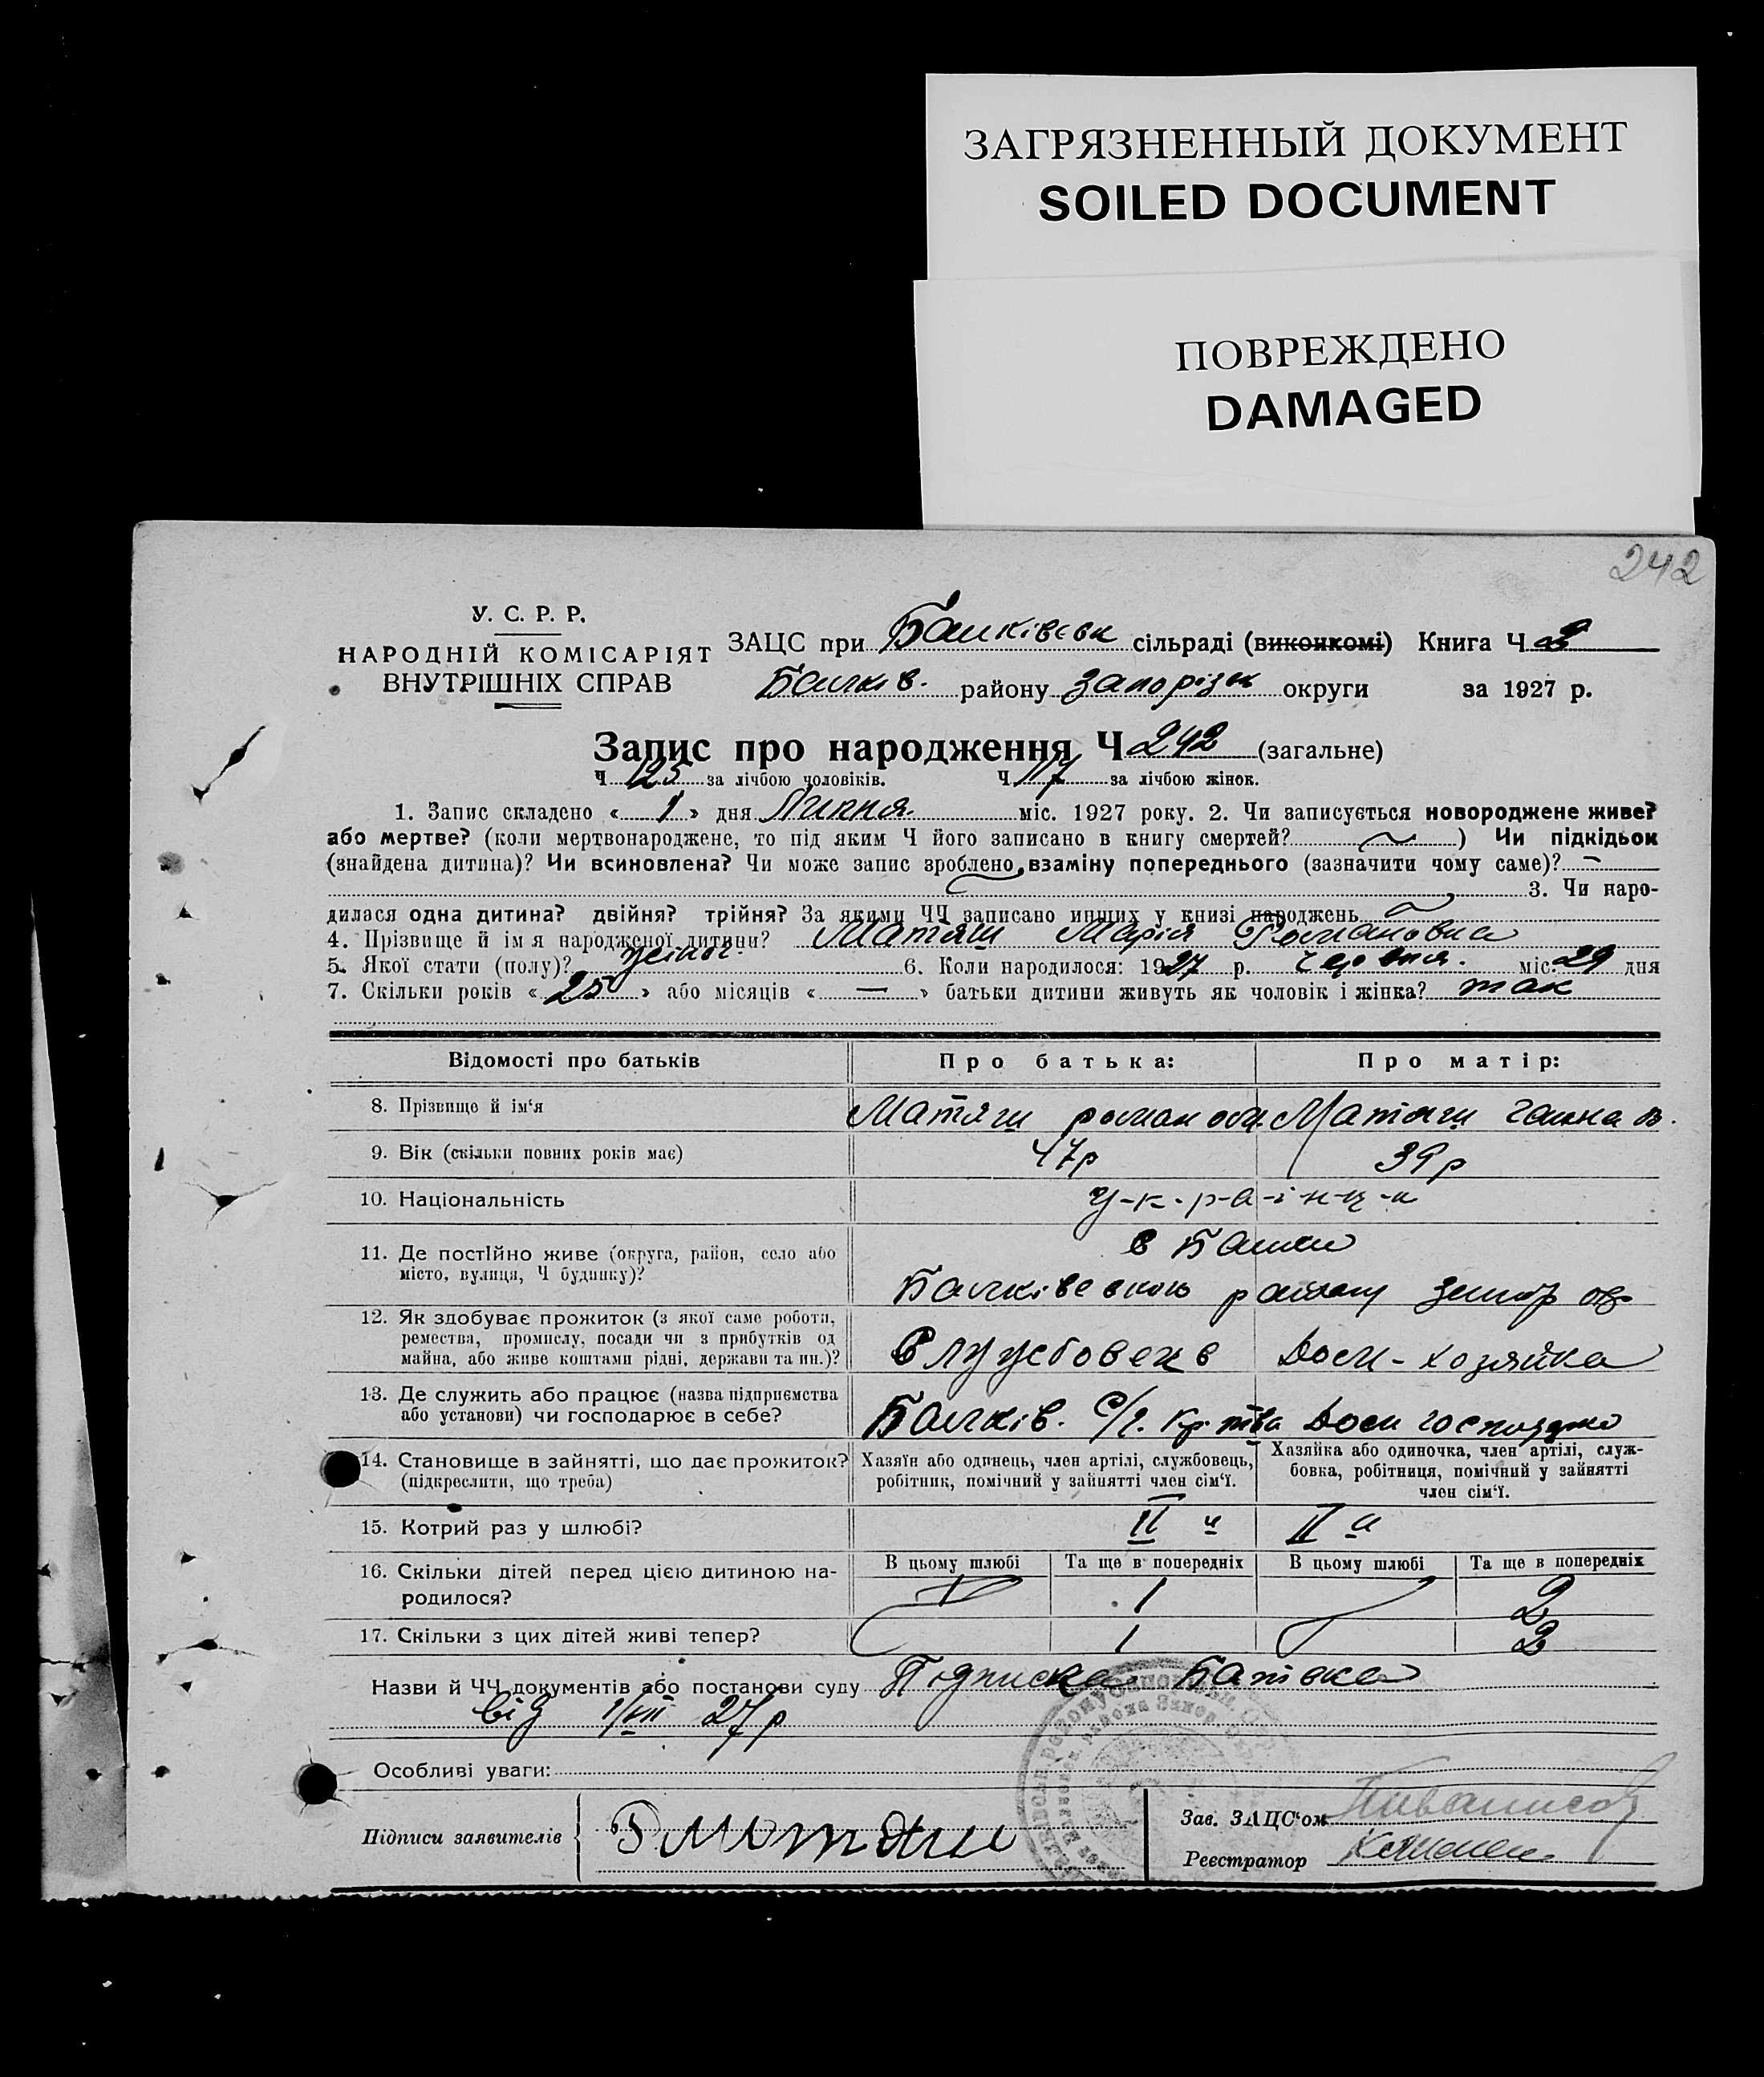 ЗАГРЯЗНЕННЫЙ ДОКУМЕНТ
SOILED DOCUMENT
ПОВРЕЖДЕНО
DAMAGED
242
У. С. Р. Р.
НАРОДНІЙ КОМІСАРІЯТ
ВНУТРІШНІХ СПРАВ
ЗАЦС при Балківськ сільраді (виконкомі) Книга Ч 2
Балків. району Запорізьк округи за 1927 р.
Запис про народження Ч 242 (загальне)
Ч 125 за лічбою чоловіків. Ч 117 за лічбою жінок.
1. Запис складено « 1 » дня Липня міс. 1927 року. 2. Чи записується новороджене живе?
або мертве? (коли мертвонароджене, то під яким Ч його записано в книгу смертей? ) Чи підкідьок
(знайдена дитина)? Чи всиновлена? Чи може запис зроблено взаміну попереднього (зазначити чому саме)? —
3. Чи наро-
дилася одна дитина? двійня? трійня? За якими ЧЧ записано инших у книзі народжень
4. Прізвище й ім я народженої дитини? Матяш Марія Романовна
5. Якої стати (полу)? жіноч. 6. Коли народилося: 1927 р. червня. міс. 29 дня
7. Скільки років « 25 » або місяців « — » батьки дитини живуть як чоловік і жінка? так
Відомості про батьків Про батька: Про матір:
8. Прізвище й ім‘я Матяш роман Матяш ганна
9. Вік (скільки повних років має) 47р 39р
10. Національність У-к-р-а-ї-н-ц-и
11. Де постійно живе (округа, район, село або
місто, вулиця, Ч будинку)?
в Балки
Балківського району
12. Як здобуває прожиток (з якої саме роботи,
ремества, промислу, посади чи з прибутків од
майна, або живе коштами рідні, держави та ин.)?
Службовець Дом-хозяйка
13. Де служить або працює (назва підприємства
або установи) чи господарює в себе?
Балків. С/г. Кр. тва Дом господ
14. Становище в зайнятті, що дає прожиток?
(підкреслити, що треба)
Хазяїн або одинець, член артілі, службовець,
робітник, помічний у зайнятті член сім‘ї.
Хазяйка або одиночка, член артілі, служ-
бовка, робітниця, помічний у зайнятті
член сім‘ї.
15. Котрий раз у шлюбі? II й II й
16. Скільки дітей перед цією дитиною на-
родилося?
В цьому шлюбі Та ще в попередніх В цьому шлюбі Та ще в попередніх
1 2
17. Скільки з цих дітей живі тепер? 1 2
Назви й ЧЧ документів або постанови суду Підписка Батька
від 1/VII 27р
Особливі уваги:
Підписи заявителів Р Матяш
Зав. ЗАЦС‘ом
Реєстратор